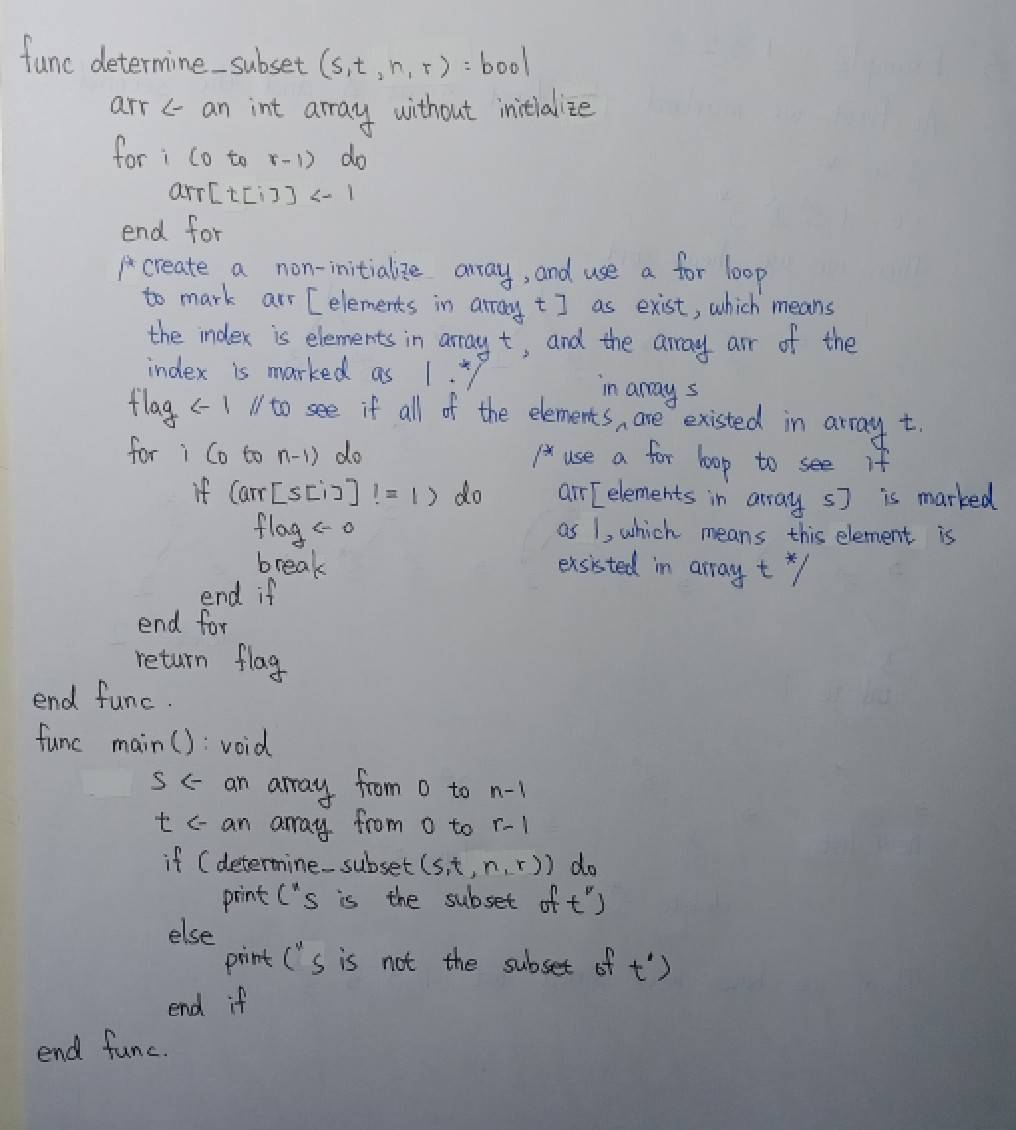 func determine_subset (s,t,n,r) : bool
arr ← an int array without initialize
for i (0 to r-1) do
arr[t[i]] ← 1
end for
/* create a non-initialize array, and use a for loop
to mark arr [elements in array t] as exist, which means
the index is elements in array t, and the array arr of the
index is marked as 1. */
in array s
flag ← 1 // to see if all of the elements ^ are existed in array t.
for i (0 to n-1) do
/* use a for loop to see if
if (arr[s[i]] != 1) do
arr[elements in array s] is marked
flag ← 0
as 1, which means this element is
break
exsisted in array t */
end if
end for
return flag
end func.
func main() : void
s ← an array from 0 to n-1
t ← an array from 0 to r-1
if (determine_subset (s,t,n,r)) do
print ("s is the subset of t")
else
print ("s is not the subset of t")
end if
end func.